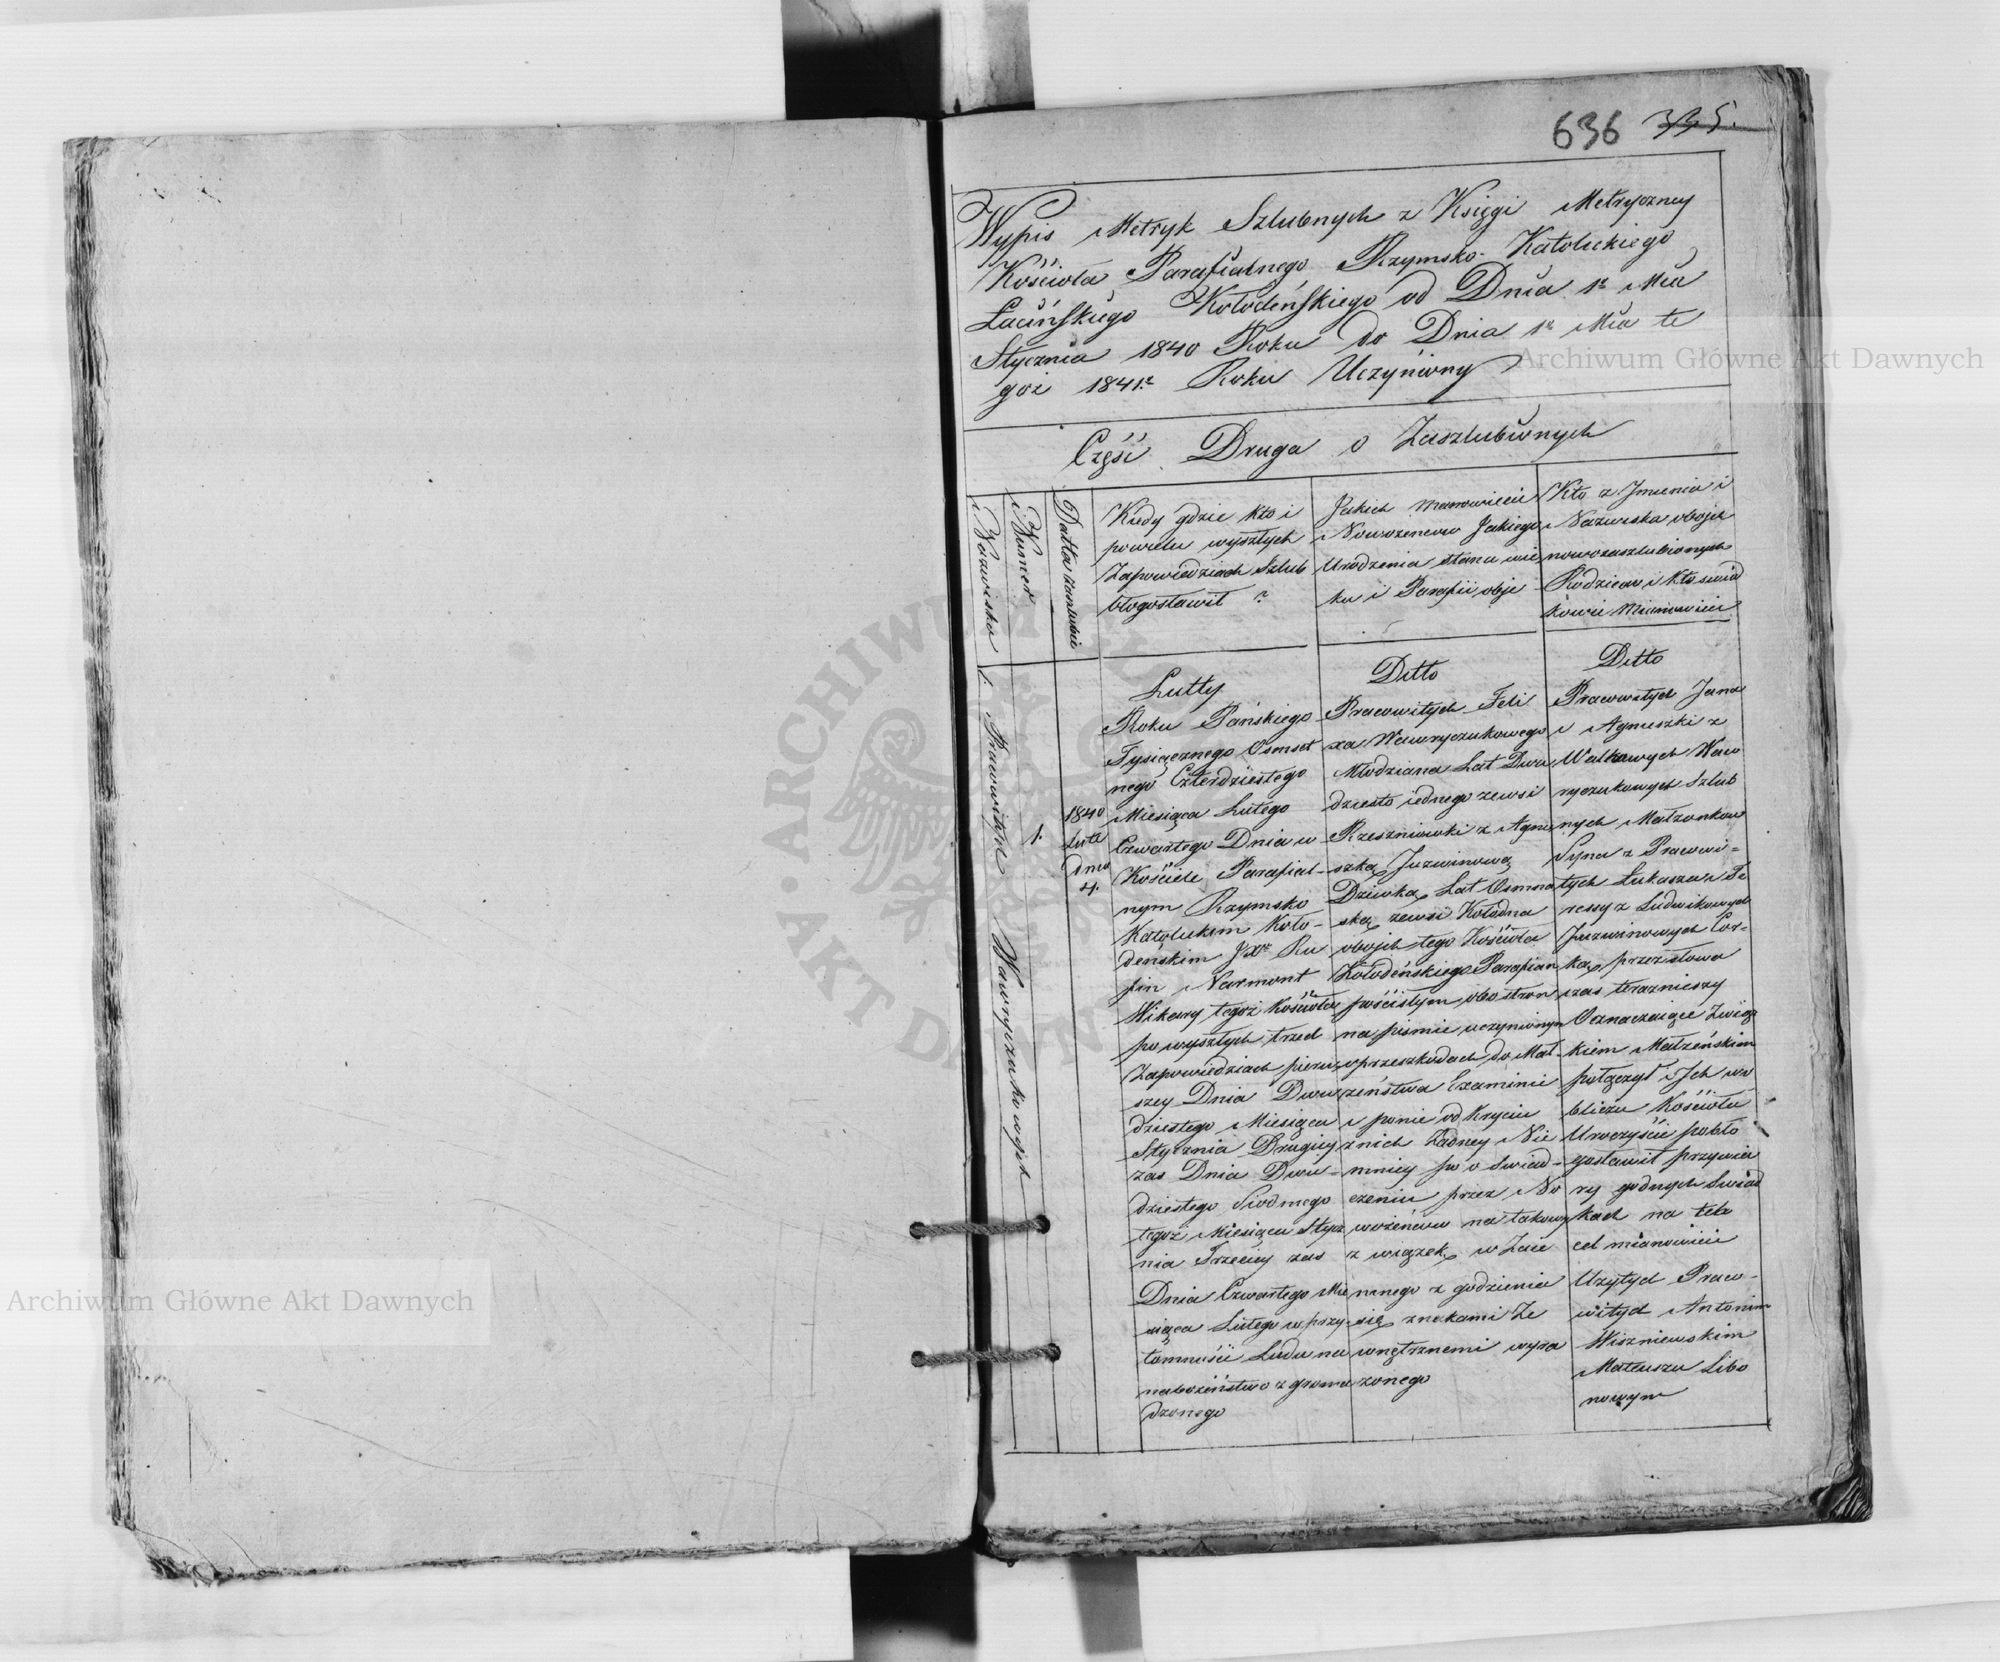 636 335.
Wypis Metryk Szlubnych z Księgi Metryczney
Kościoła Parafialnego Rzymsko-Katolickiego
Łacińskiego Kołodeńskiego od Dnia 1º Mca
Stycznia 1840 Roku do Dnia 1º Mca te
goż 1841º Roku Uczyniony
Część Druga o Zaszlubionych
Nazwiska
Numer
Datta zaszlubie
Kiedy gdzie kto i
powielu wyszłych
Zapowiedziach Szlub
błogosławił ?
Jakich mianowicie
Nowożencow Jakiego
Urodzenia stanu wie
ku i Parafii obje
Kto z Jmienia i
Nazwiska obojch
nowozaszlubionych
Rodzicow i Kto swiad
kowie mianowicie
1. Pracowitych Wawryczukowych
1.
1840
Lute
Dnia
4.
Lutty
Roku Pańskiego
Tysiącznego Osmset
nego Czterdziestego
Miesiąca Lutego
Czwartego Dnia w
Kościele Parafial-
nym Rzymsko
Katolickim Koło-
deńskim JXº Ru
fin Narmont
Wikary tegoż Kościoła
po wyszłych trzech
Zapowiedziach pierw
szey Dnia Dwu
dziestego Miesiąca
Stycznia Drugiey
zas Dnia Dwu-
dziestego Siodmego
tegoż Miesiąca Stycz
nia Trzeciey zas
Dnia Czwartego Mie
siąca Lutego w przy-
tomności Ludu na
nabożeństwo zgroma
dzonego
Ditto
Pracowitych Feli
xa Wawryczukowego
Młodziana Lat Dwu
dziesto iednego zewsi
Rzeszniowki z Agnie
szką Juzwinową
Dziewką Lat Osmna
ską zewsi Kołodna
obojch tego Kościoła
Kołodeńskiego Parafian
pościsłym obostron
na pismie uczynionym
o przeszkodach do Mał-
żeństwa Examinie
i ponie odkryciu
znich Żadney Nie
mniey po o swiad-
czeniu przez No
wożencow na takowy
związek w Zaie
mnego zgodzenia
się znakami Ze
wnętrznemi wyra
żonego
Ditto
Pracowitych Jana
i Agnieszki z
Walkowych Waw
ryczukowych Szlub
nych Małżonkow
Syna z Pracowi-
tych Łukasza i Te
ressy z Ludwikowych
Juzwinowych Cor-
ką przez słowa
czas teraznieyszy
Oznaczaiące Zwiąs
kiem Małżeńskiem
połączył i Jch wo
bliczu Kościoła
Uroczyście pobło
gosławił przywia
ry godnych Swiad
kach na ten
cel mianowicie
Użytych Praco-
witych Antonim
Wiszniewskim
Mateuszu Libo
nowym
Archiwum Główne Akt Dawnych
Archiwum Główne Akt Dawnych
ARCHIWUM
AKT DAWNYCH